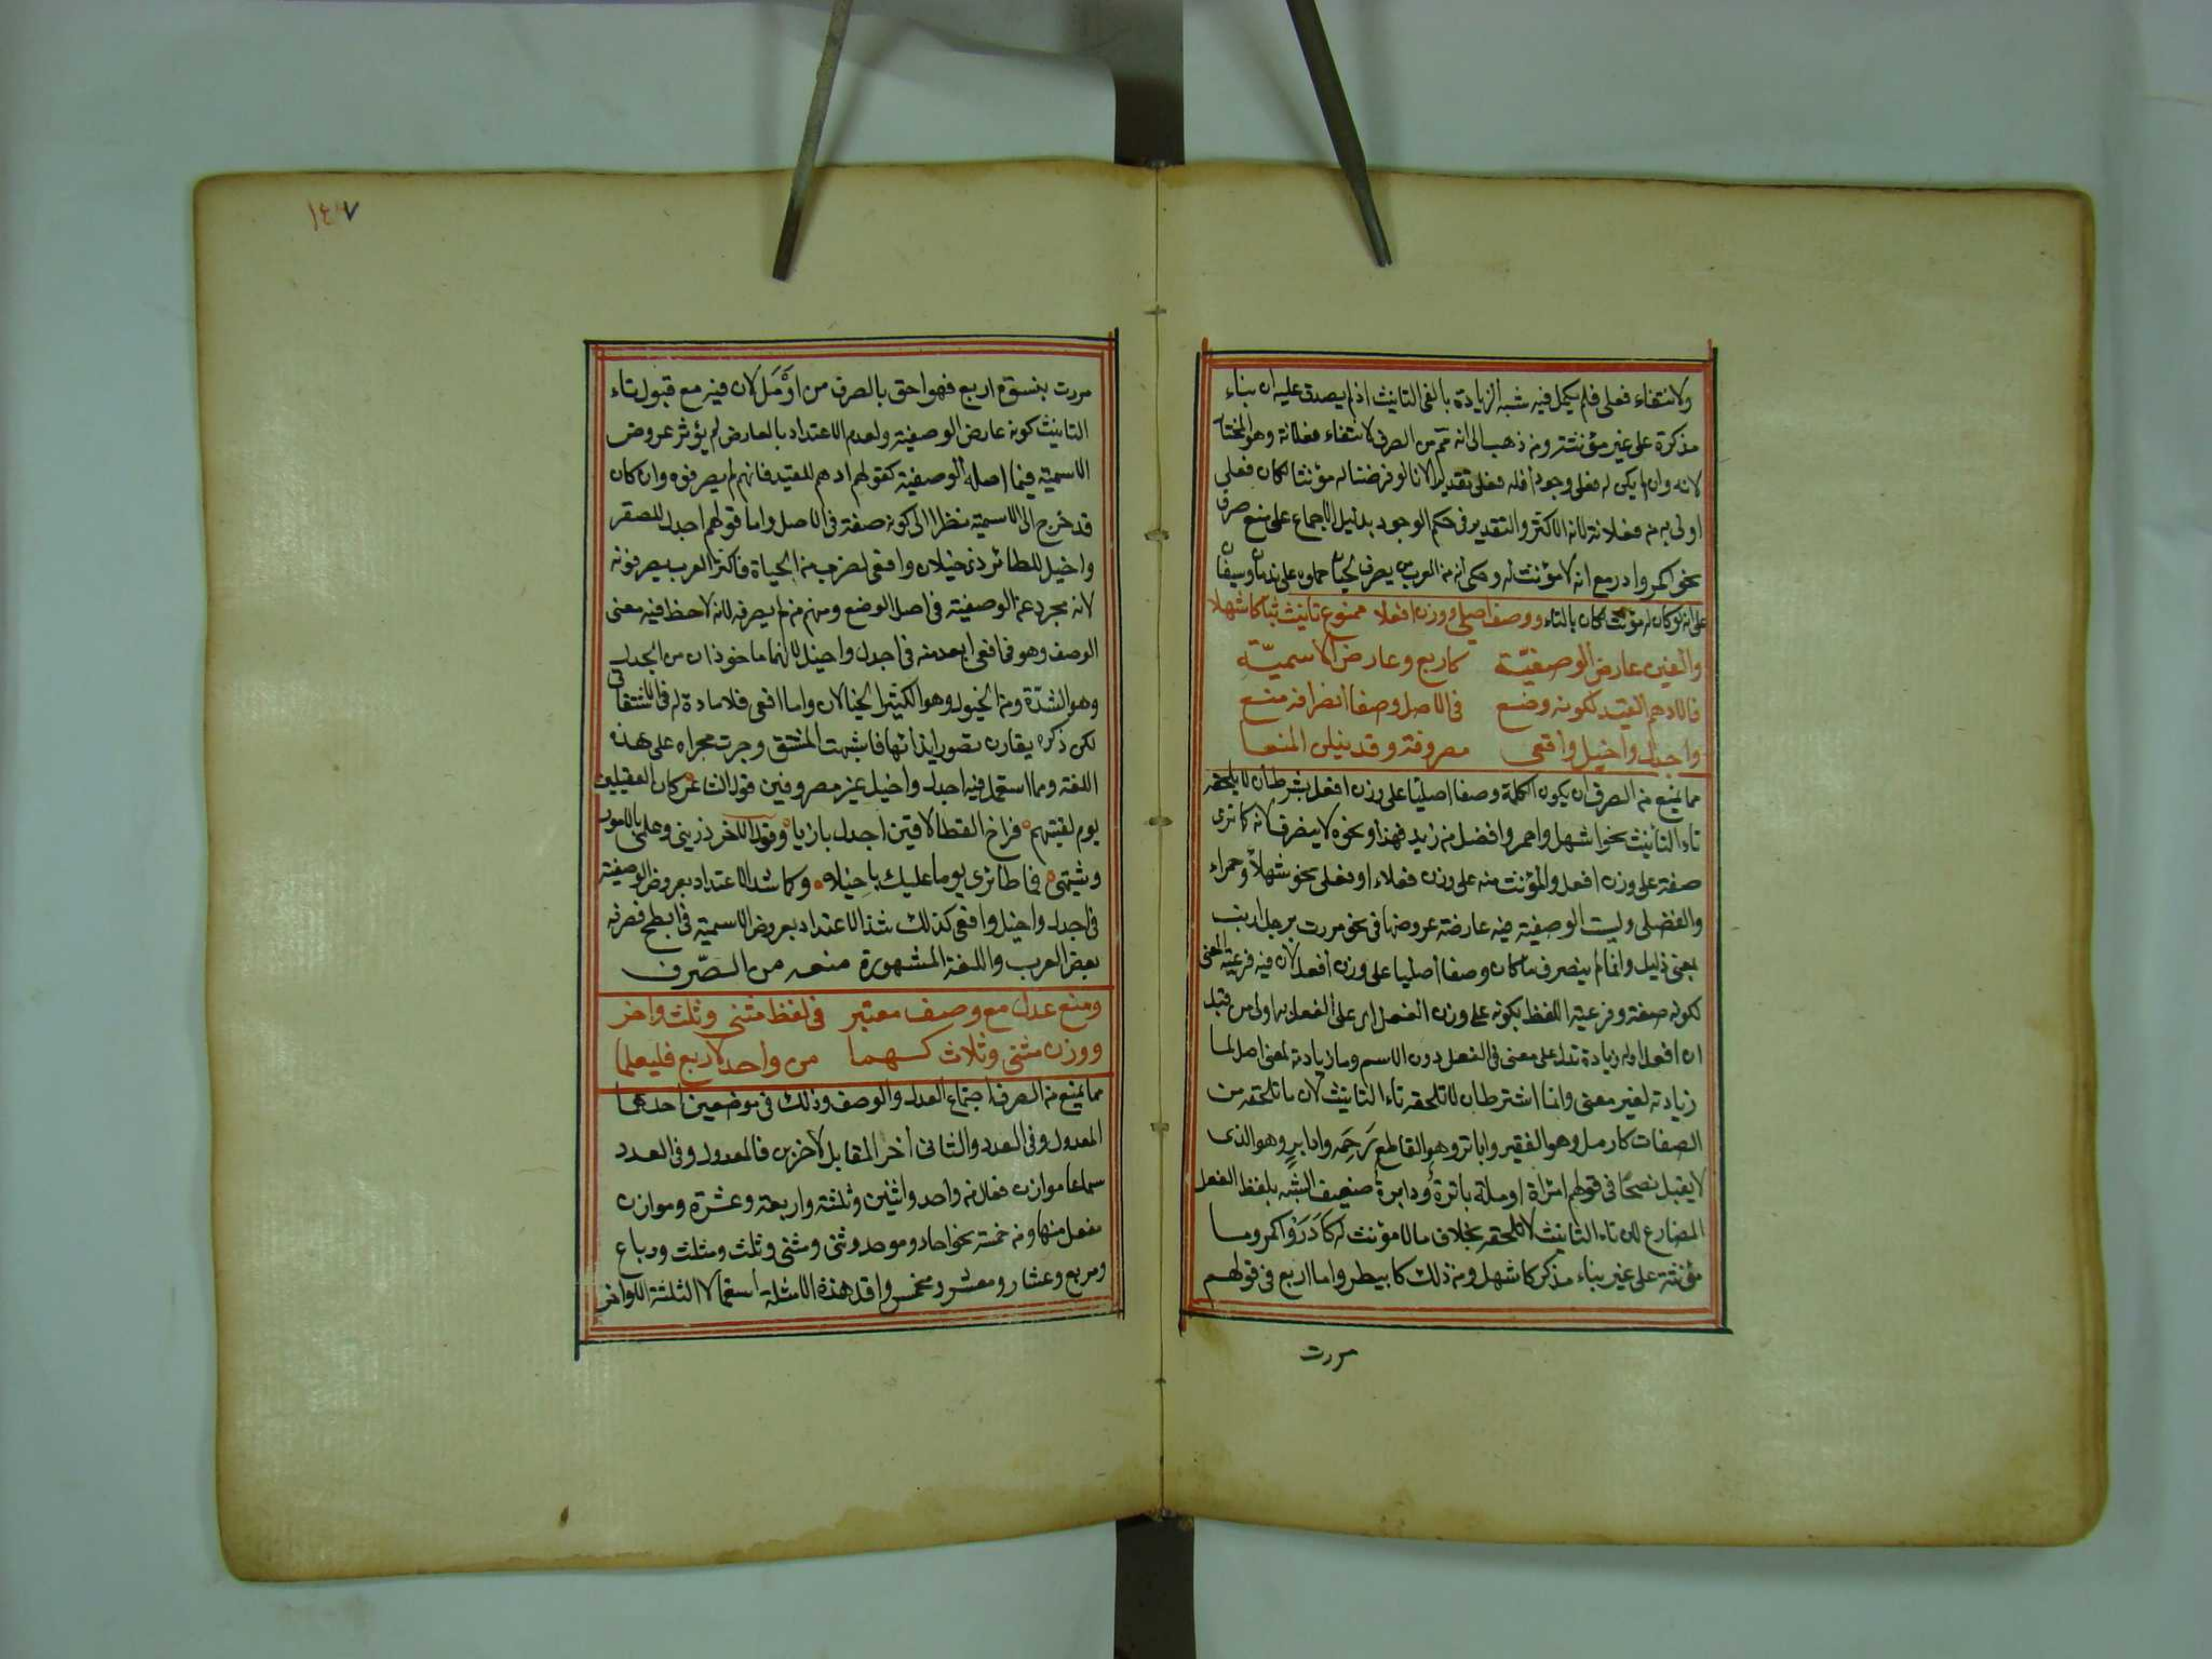 ولانتفاء فعلى فلم يكمل فيه شبه الزيادة بالفي التانيث اذ لم يصدق عليه ان بناء
مذكره على غير مؤنثه ومن ذهب الى انه تم من الصرف لانتفاء فعلانة وهو المختار
لانه وان لم يكن له فعلى وجودا فله فعلى تقديرا لانا لو فرضنا له مؤنثا لكان فعلى
اولى به من فعلانة لانه الاكثر والتقدير فى حكم الوجود بدليل الاجماع على منع صرف
نحو اكمر وادر مع انه لا مؤنث له وحكى ان من العرب من يصرف لحيان حملا على ندمان وسيفان
على انه لو كان له مؤنث لكان بالتاء ووصف اصلي ووزن افعلا ممنوع تانيث بتا كاشهلا
والغين عارض الوصفيّة كاربع وعارض الاسميّة
فالادهم القيد لكونه وضع فى الاصل وصفا انصرافه منع
واجدل واخيل وافعى مصروفة وقد ينلن المنعا
مما يمنع من الصرف ان يكون الكلمة وصفا اصليا على وزن افعل بشرط ان لا يلحقه
تاء التانيث نحو اشهل واحمر وافضل من زيد فهذا ونحوه لا ينصرف لانه كا ترى
صفة على وزن افعل والمؤنث منه على وزن فعلاء او فعلى نحو شهلاء وحمراء
والفضلى وليست الوصفية فيه عارضة عروضها فى نحو مررت برجل ارنب
بمعنى ذليل وانما لم ينصرف ما كان وصفا اصليا على وزن افعل لان فيه فرعية المعنى
لكونه صفة وفرعية اللفظ بكونه على وزن الفعل اى على الفعل به اولى من قبل
ان افعل اوله زيادة تدل على معنى فى الفعل دون الاسم وما زيادته لمعنى اصل لما
زيادته لغير معنى وانما اشترط ان لا تلحقه تاء التانيث لان ما تلحقه من
الصفات كارمل وهو الفقير واباتر وهو القاطع رَحِمَه وادابرٍ وهو الذى
لا يقبل نصحًا فى قولهم امراة ارملة باترة ودابرة ضعيف الشبه بلفظ الفعل
المضارع لان تاء التانيث لا تلحقه بخلاف ما لا مؤنث له كآدَرَ واكمر وما
مؤنثة على غير بناء مذكر كاشهل ومن ذلك كابيطر واما اربع فى قولهم
مررت
١٤٧
مررت بنسوة اربع فهو احق بالصرف من ارْمَل لان فيه مع قبول تاء
التانيث كونه عارض الوصفية ولعدم الاعتداد بالعارض لم يؤثر عروض
الاسمية فيما اصله الوصفية كقولهم ادهم للقيد فانهم لم يصرفوه وان كان
قد خرج الى الاسمية نظرا الى كونه صفة فى الاصل واما قولهم اجدل للصقر
واخيل للطائر ذى خيلان وافعى لضرب من الحياة فاكثر العرب يصرفونه
لانه مجرد عن الوصفية فى اصل الوضع ومنهم من لم يصرفه لانه لاحظ فيه معنى
الوصف وهو فى افعى ابعد منه فى اجدل واخيل لانهما ماخوذان من الجدل
وهو الشدّة ومن الخيول وهو الكثير الخيلان واما افعى فلا مادة له فى الاشتقاق
لكن ذكره يقارن تصور ايذائها فاشبهت المشتق وجرت مجراه على هذه
اللغة ومما استعمل فيه اجدل واخيل غير مصروفين قول الشاعر كان العقيليين
يوم لقيتهم فراخ القطا لاقين اجدل بازيا وقول الاخر ذريني وعلمي بالامور
وشيمتي فما طائري يوما عليك باخيلا وكما شذ الاعتداد بعروض الوصفية
فى اجدل واخيل وافعى كذلك شذ الاعتداد بعروض الاسمية فى ابطح فصرفه
بعض العرب واللغة المشهورة منعه من الصّرف
ومنع عدل مع وصف معتبر فى لفظ مثنى وثلث واخر
ووزن مثنى وثلاث كهما من واحد لاربع فليعلما
مما يمنع من الصرف اجتماع العدل والوصف وذلك فى موضعين احدهما
المعدول وفى العدد والثانى اخر المقابل لآخرين فالمعدول وفى العدد
سماعا موازن فعال من واحد واثنين وثلثة واربعة وعشرة وموازن
مفعل منها ومن خمسة نحو احاد وموحد وثنى ومثنى وثلث ومثلث ورباع
ومربع وعشار ومعشر ومخمس واقل هذه الامثلة استعمالا الثلثة الاواخر